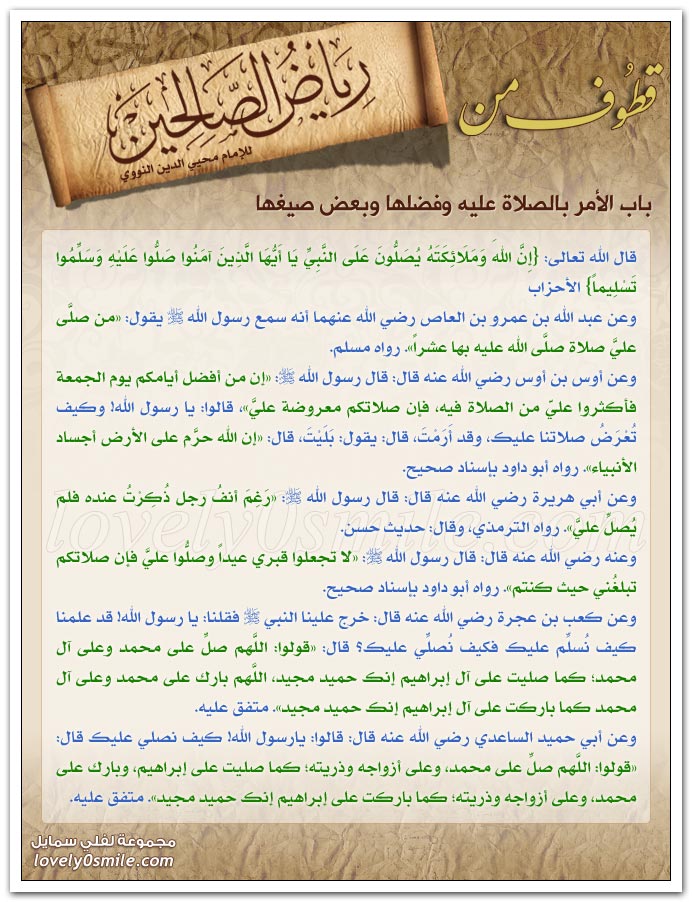 قطوف من
رياض الصالحين
للإمام محيي الدين النووي
باب الأمر بالصلاة عليه وفضلها وبعض صيغها
قال الله تعالى: {إِنَّ اللهَ وَمَلَائِكَتَهُ يُصَلُّونَ عَلَى النَّبِيِّ يَا أَيُّهَا الَّذِينَ آمَنُوا صَلُّوا عَلَيْهِ وَسَلِّمُوا
تَسْلِيماً} الأحزاب
وعن عبد الله بن عمرو بن العاص رضي الله عنهما أنه سمع رسول الله ﷺ يقول: «من صلَّى
عليَّ صلاة صلَّى الله عليه بها عشراً». رواه مسلم.
وعن أوس بن أوس رضي الله عنه قال: قال رسول الله ﷺ: «إن من أفضل أيامكم يوم الجمعة
فأكثروا عليّ من الصلاة فيه، فإن صلاتكم معروضة عليَّ»، قالوا: يا رسول الله! وكيف
تُعْرَضُ صلاتنا عليك، وقد أَرَمْتَ، قال: يقول: بَلَيْتَ، قال: «إن الله حرَّم على الأرض أجساد
الأنبياء». رواه أبو داود بإسناد صحيح.
وعن أبي هريرة رضي الله عنه قال: قال رسول الله ﷺ: «رَغِمَ أنفُ رَجل ذُكِرْتُ عنده فلم
يُصلِّ عليَّ». رواه الترمذي، وقال: حديث حسن.
وعنه رضي الله عنه قال: قال رسول الله ﷺ: «لا تجعلوا قبري عيداً وصلُّوا عليَّ فإن صلاتكم
تبلغُني حيث كنتم». رواه أبو داود بإسناد صحيح.
وعن كعب بن عجرة رضي الله عنه قال: خرج علينا النبي ﷺ فقلنا: يا رسول الله! قد علمنا
كيف نُسلِّم عليك فكيف نُصلِّي عليك؟ قال: «قولوا: اللَّهم صلِّ على محمد وعلى آل
محمد؛ كما صليت على آل إبراهيم إنك حميد مجيد، اللَّهم بارك على محمد وعلى آل
محمد كما باركت على آل إبراهيم إنك حميد مجيد». متفق عليه.
وعن أبي حميد الساعدي رضي الله عنه قال: قالوا: يارسول الله! كيف نصلي عليك قال:
«قولوا: اللَّهم صلِّ على محمد، وعلى أزواجه وذريته؛ كما صليت على إبراهيم، وبارك على
محمد، وعلى أزواجه وذريته؛ كما باركت على إبراهيم إنك حميد مجيد». متفق عليه.
lovely0smile.com
مجموعة لفلي سمايل
lovely0smile.com